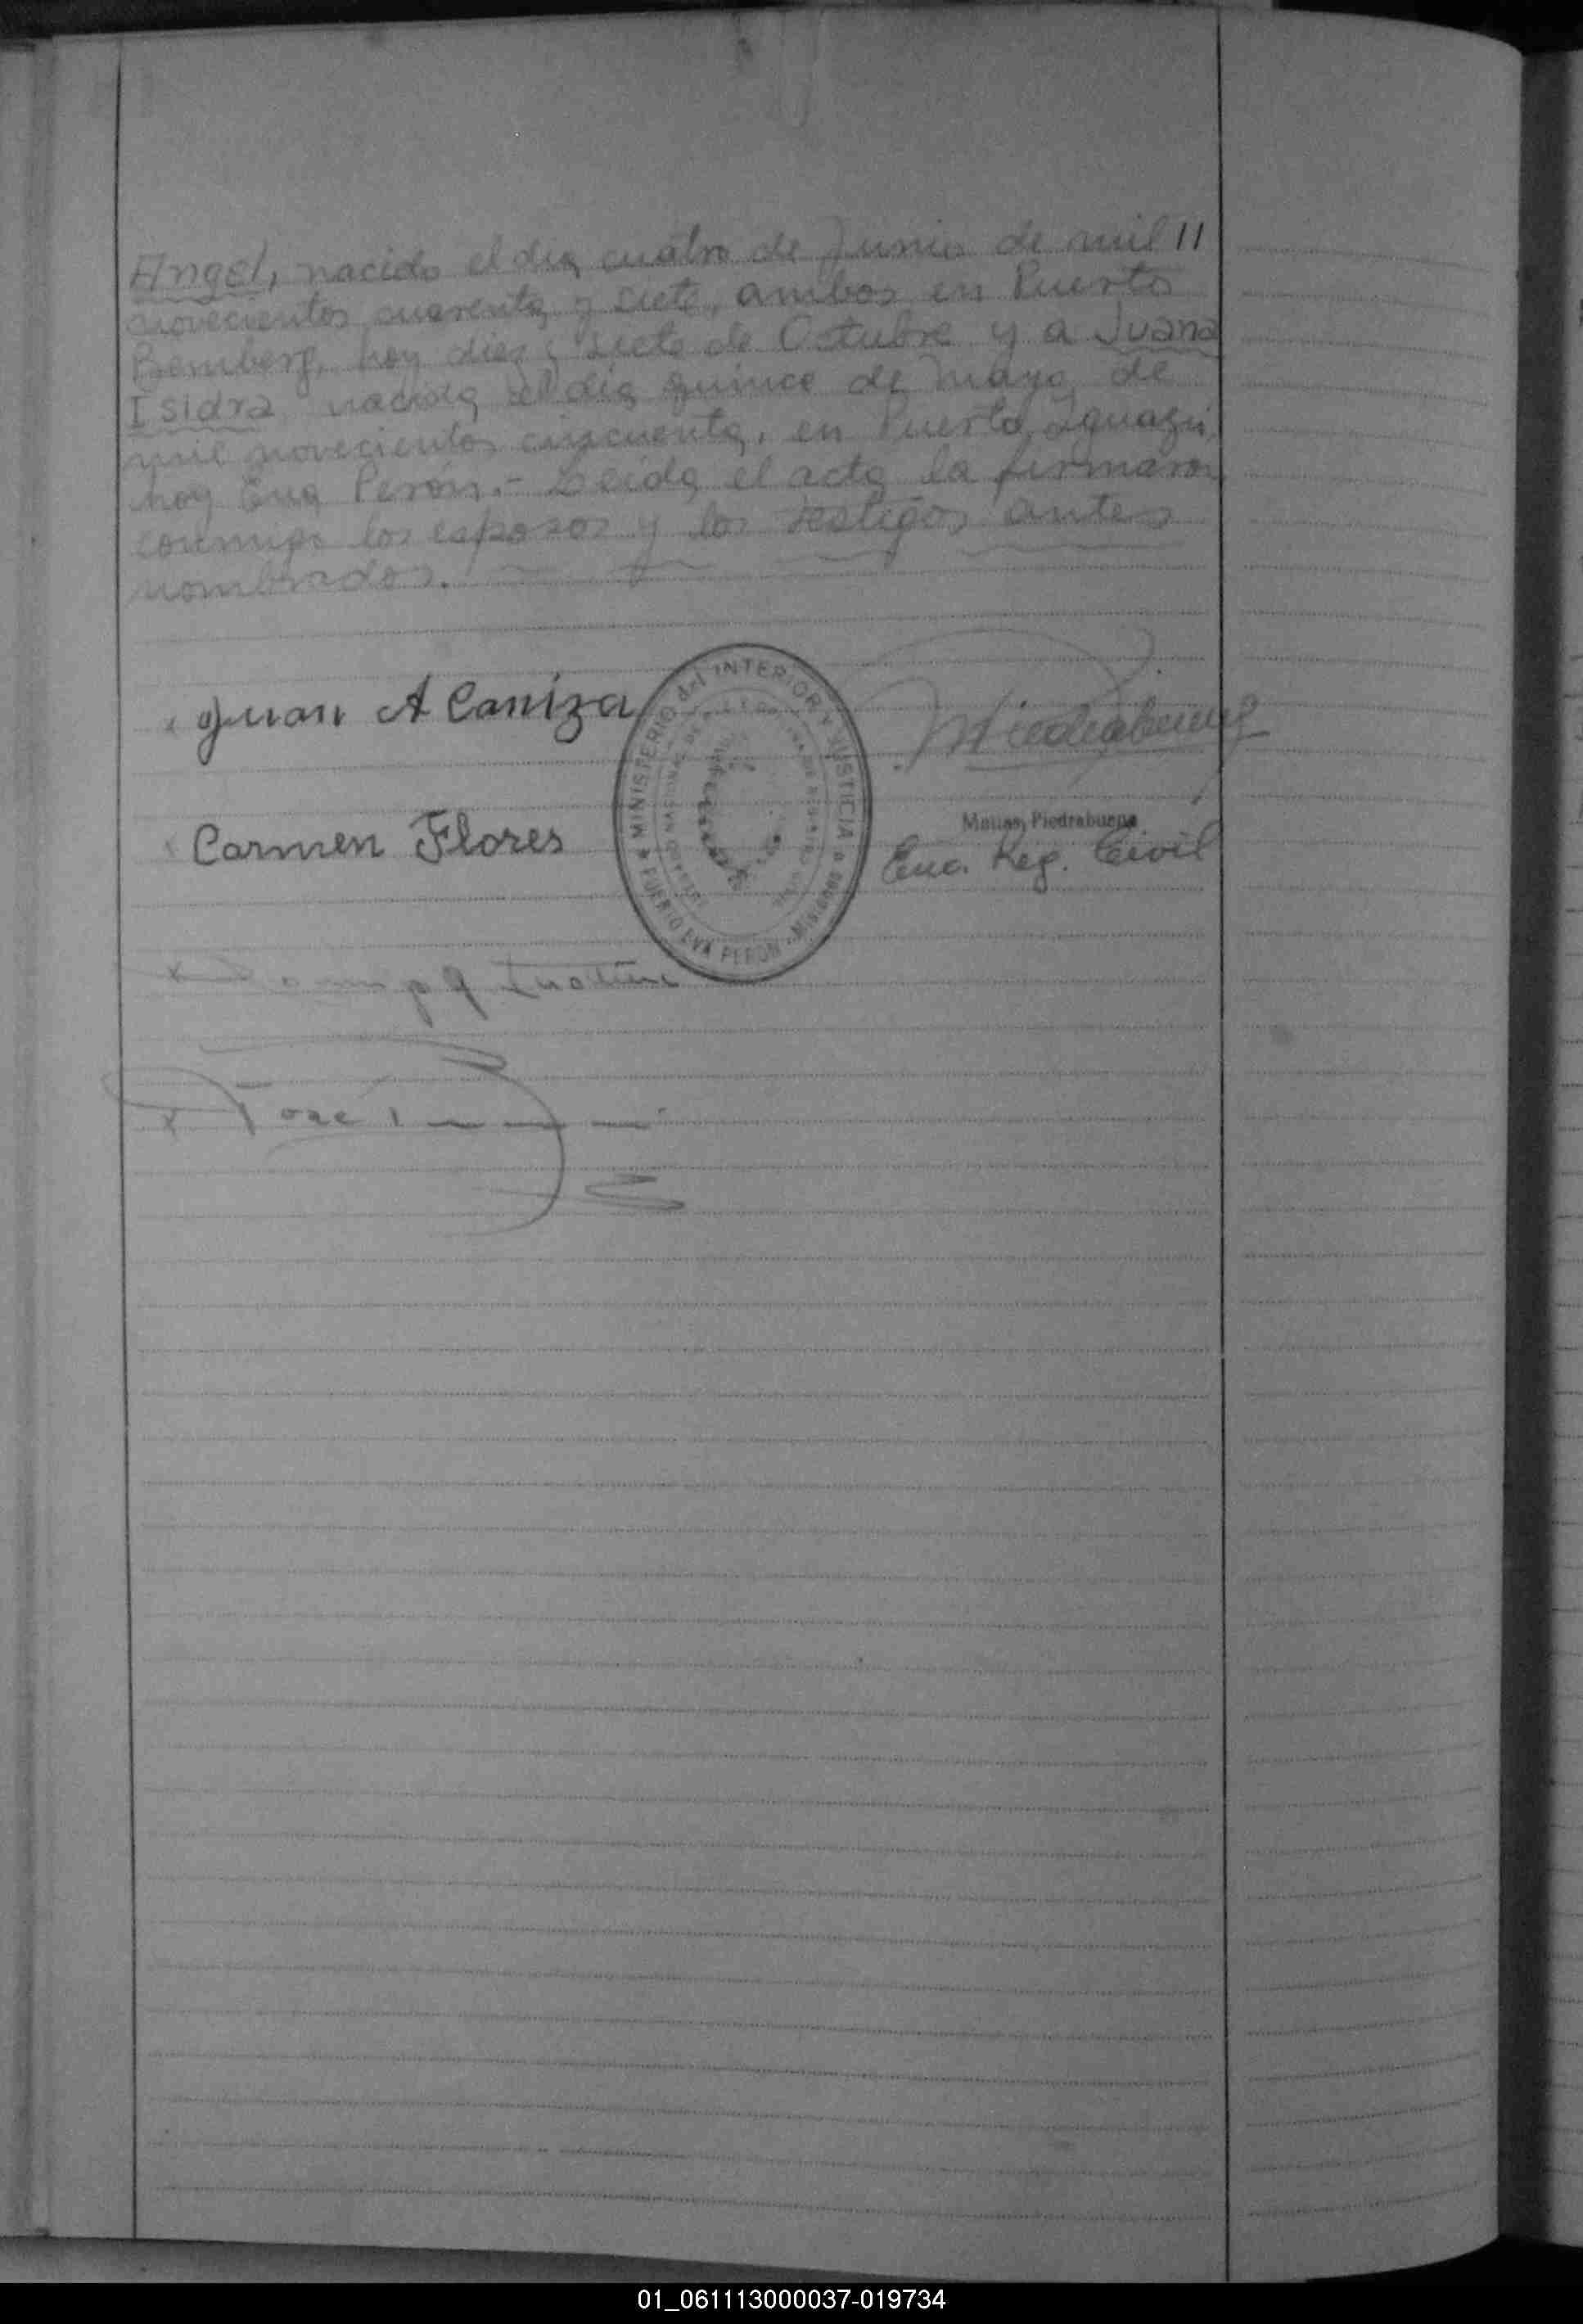 Angel, nacido el dia cuatro de Junio de mil 11
novecientos cuarenta y siete, ambos en Puerto
Bemberg, hoy diez y siete de Octubre y a Juana
Isidra nacida el dia quince de Mayo de
mil novecientos cincuenta, en Puerto Iguazú,
hoy Eva Perón.- Leida el acta la firmaron
conmigo los esposos y los testigos antes
nombrados.
Juan A Caniza
MINISTERIO del INTERIOR y JUSTICIA
PUERTO EVA PERON - Misiones
Piedrabuena
Matias Piedrabuena
Carmen Flores
Enc. Reg. Civil
José
01_061113000037-019734